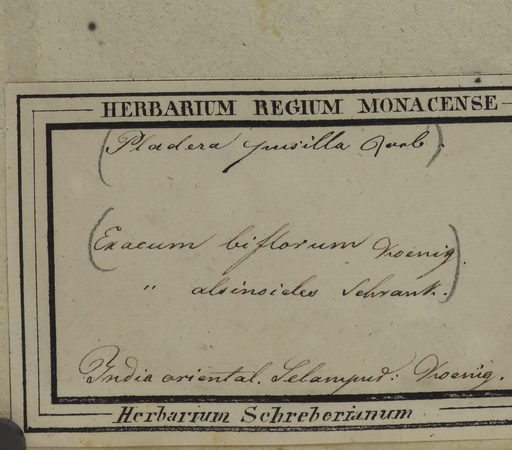 HERBARIUM REGIUM MONACENSE
(Pladera pusilla Roxb.)
(Exacum biflorum Koenig.
" alsinoides Schrank.)
India oriental. Selampur: Koenig.
Herbarium Schreberianum